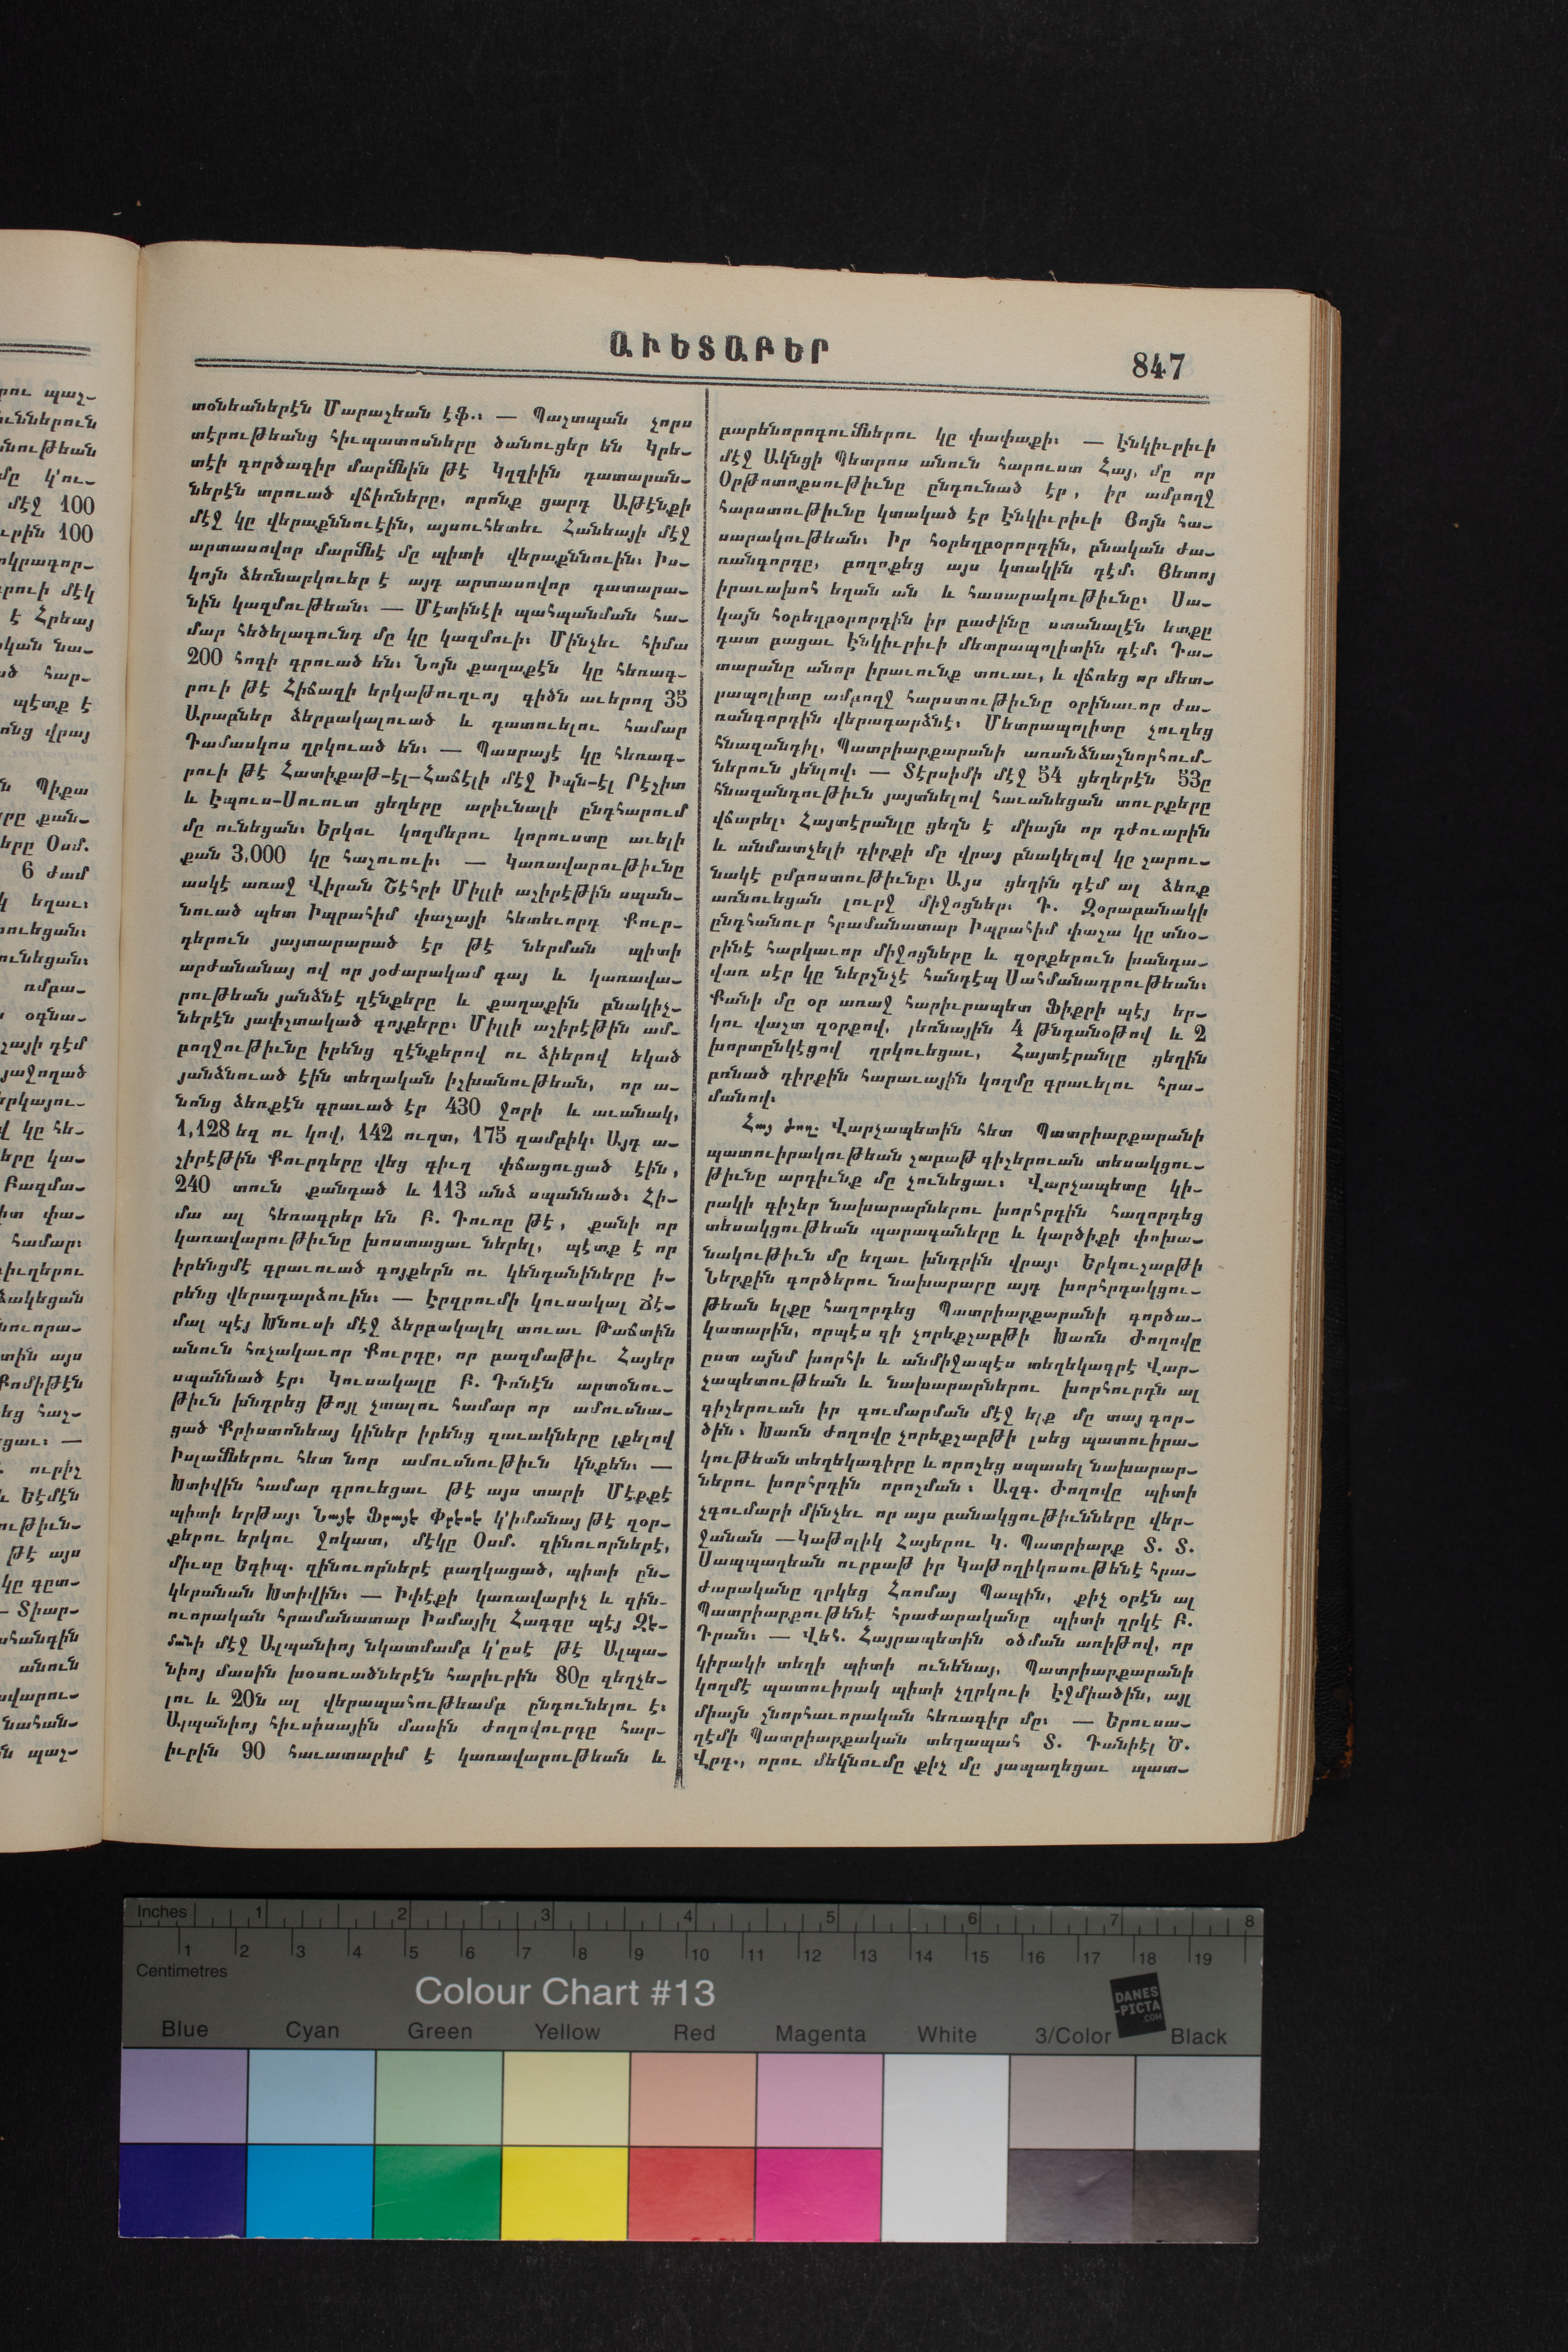 ԱՒԵՏԱԲԵՐ
847
տօնեաներէն Մարաշեան էֆ.։ — Պաշտպան չորս
տէրութեանց հիւպատոսները ծանուցեր են Կրե-
տէի գործադիր մարմնին թէ Կղզիին դատարան-
ներէն տրուած վճիռները, որոնք ցարդ Աթէնքի
մէջ կը վերաքննուէին, այսուհետեւ Հանեայի մէջ
արտասովոր մարմնէ մը պիտի վերաքննուին։ Իս-
կոյն ձեռնարկուեր է այդ արտասովոր դատարա-
նին կազմութեան։ — Մէտինէի պահպանման հա-
մար հեծելագունդ մը կը կազմուի։ Մինչեւ հիմա
200 հոգի գրուած են։ Նոյն քաղաքէն կը հեռագ-
րուի թէ Հիճազի երկաթուղւոյ գիծն աւերող 35
Արաբներ ձերբակալուած և դատուելու համար
Դամասկոս ղրկուած են։ — Պասրայէ կը հեռագ-
րուի թէ Հատիքաթ-էլ-Հաճէլի մէջ Իպն-էլ Րէշիտ
և Էպուս-Սուուտ ցեղերը արիւնալի ընդհարում
մը ունեցան։ Երկու կողմերու կորուստը աւելի
քան 3,000 կը հաշուուի։ — Կառավարութիւնը
ասկէ առաջ Վիրան Շէհրի Միլլի աշիրէթին սպան-
նուած պետ Իպրահիմ փաշայի հետեւորդ Քուր-
դերուն յայտարարած էր թէ ներման պիտի
արժանանայ ով որ յօժարակամ գայ և կառավա-
րութեան յանձնէ զէնքերը և քաղաքին բնակիչ-
ներէն յափշտակած գոյքերը։ Միլլի աշիրէթին ամ-
բողջութիւնը իրենց զէնքերով ու ձիերով եկած
յանձնուած էին տեղական իշխանութեան, որ ա-
նոնց ձեռքէն գրաւած էր 430 ջորի և աւանակ,
1,128 եզ ու կով, 142 ուղտ, 175 զամբիկ։ Այդ ա-
շիրէթին Քուրդերը վեց գիւղ փճացուցած էին,
240 տուն քանդած և 113 անձ սպաննած։ Հի-
մա ալ հեռագրեր են Բ. Դուռը թէ, քանի որ
կառավարութիւնը խոստացաւ ներել, պէտք է որ
իրենցմէ գրաւուած գոյքերն ու կենդանիները ի-
րենց վերադարձուին։ — Էրզրումի կուսակալ Ճէ-
մալ պէյ Խնուսի մէջ ձերբակալել տուաւ Թաճտին
անուն հռչակաւոր Քուրդը, որ բազմաթիւ Հայեր
սպաննած էր։ Կուսակալը Բ. Դռնէն արտօնու-
թիւն խնդրեց թոյլ չտալու համար որ ամուսնա-
ցած Քրիստոնեայ կիներ իրենց զաւակները լքելով
Իսլամներու հետ նոր ամուսնութիւն կնքեն։ —
Խտիվին համար գրուեցաւ թէ այս տարի Մէքքէ
պիտի երթայ։ Նայէ Ֆրայէ Փրէսէ կ՚իմանայ թէ զօր-
քերու երկու ջոկատ, մէկը Օսմ. զինուորներէ,
միւսը Եգիպ. զինուորներէ բաղկացած, պիտի ըն-
կերանան Խտիվին։ — Իփէքի կառավարիչ և զին-
ուորական հրամանատար Իսմայիլ Հագգը պէյ Զէ-
մանի մէջ Ալպանիոյ նկատմամբ կ՚ըսէ թէ Ալպա-
նիոյ մասին խօսուածներէն հարիւրին 80ը զեղչե-
լու և 20ն ալ վերապահութեամբ ընդունելու է։
Ալպանիոյ հիւսիսային մասին ժողովուրդը հար-
իւրին 90 հաւատարիմ է կառավարութեան և
բարենորոգումներու կը փափաքի։ — Էնկիւրիւի
մէջ Ակնցի Պետրոս անուն հարուստ Հայ, մը որ
Օրթոտոքսութիւնը ընդունած էր, իր ամբողջ
հարստութիւնը կտակած էր Էնկիւրիւի Յոյն հա-
սարակութեան։ Իր հօրեղբօրորդին, բնական ժա-
ռանգորդը, բողոքեց այս կտակին դէմ։ Յետոյ
իրաւախոհ եղան ան և հասարակութիւնը։ Սա-
կայն հօրեղբօրորդին իր բաժինը ստանալէն ետքը
դատ բացաւ Էնկիւրիւի մետրապոլիտին դէմ։ Դա-
տարանը անոր իրաւունք տուաւ, և վճռեց որ մետ-
րապոլիտը ամբողջ հարստութիւնը օրինաւոր ժա-
ռանգորդին վերադարձնէ։ Մետրապոլիտը չուզեց
հնազանդիլ, Պատրիարքարանի առանձնաշնորհում-
ներուն յենլով։ — Տէրսիմի մէջ 54 ցեղերէն 53ը
հնազանդութիւն յայտնելով հաւանեցան տուրքերը
վճարել։ Հայտէրանլը ցեղն է միայն որ դժուարին
և անմատչելի դիրքի մը վրայ բնակելով կը շարու-
նակէ ըմբոստութիւնը։ Այս ցեղին դէմ ալ ձեռք
առնուեցան լուրջ միջոցներ։ Դ. Զօրաբանակի
ընդհանուր հրամանատար Իպրահիմ փաշա կը տնօ-
րինէ հարկաւոր միջոցները և զօրքերուն խանդա-
վառ սէր կը ներշնչէ հանդէպ Սահմանադրութեան։
Քանի մը օր առաջ հարիւրապետ Ֆիքրի պէյ եր-
կու վաշտ զօրքով, լեռնային 4 թնդանօթով և 2
խորտընկէցով ղրկուեցաւ, Հայտէրանլը ցեղին
բռնած դիրքին հարաւային կողմը գրաւելու հրա-
մանով։
Հայ ժող. Վարչապետին հետ Պատրիարքարանի
պատուիրակութեան շաբաթ գիշերուան տեսակցու-
թիւնը արդիւնք մը չունեցաւ։ Վարչապետը կի-
րակի գիշեր նախարարներու խորհրդին հաղորդեց
տեսակցութեան պարագաները և կարծիքի փոխա-
նակութիւն մը եղաւ խնդրին վրայ։ Երկուշաբթի
Ներքին գործերու նախարարը այդ խորհրդակցու-
թեան ելքը հաղորդեց Պատրիարքարանի գործա-
կատարին, որպէս զի չորեքշաբթի Խառն Ժողովը
ըստ այնմ խորհի և անմիջապէս տեղեկագրէ Վար-
չապետութեան և նախարարներու խորհուրդն ալ
գիշերուան իր գումարման մէջ ելք մը տայ գոր-
ծին։ Խառն Ժողովը չորեքշաբթի լսեց պատուիրա-
կութեան տեղեկագիրը և որոշեց սպասել նախարար-
ներու խորհրդին որոշման։ Ազգ. Ժողովը պիտի
չգումարի մինչեւ որ այս բանակցութիւնները վեր-
ջանան —Կաթոլիկ Հայերու Կ. Պատրիարք Տ. Տ.
Սապպաղեան ուրբաթ իր Կաթողիկոսութենէ հրա-
ժարականը ղրկեց Հռոմայ Պապին, քիչ օրէն ալ
Պատրիարքութենէ հրաժարականը պիտի ղրկէ Բ.
Դրան։ — Վեհ. Հայրապետին օծման առիթով, որ
կիրակի տեղի պիտի ունենայ, Պատրիարքարանի
կողմէ պատուիրակ պիտի չղրկուի Էջմիածին, այլ
միայն շնորհաւորական հեռագիր մը։ — Երուսա-
ղէմի Պատրիարքական տեղապահ Տ. Դանիէլ Ծ.
Վրդ., որու մեկնումը քիչ մը յապաղեցաւ պատ-
Inches 1 2 3 4 5 6 7 8
1 2 3 4 5 6 7 8 9 10 11 12 13 14 15 16 17 18 19
Centimetres
Colour Chart #13
DANES
-PICTA
.COM
Blue Cyan Green Yellow Red Magenta White 3/Color Black